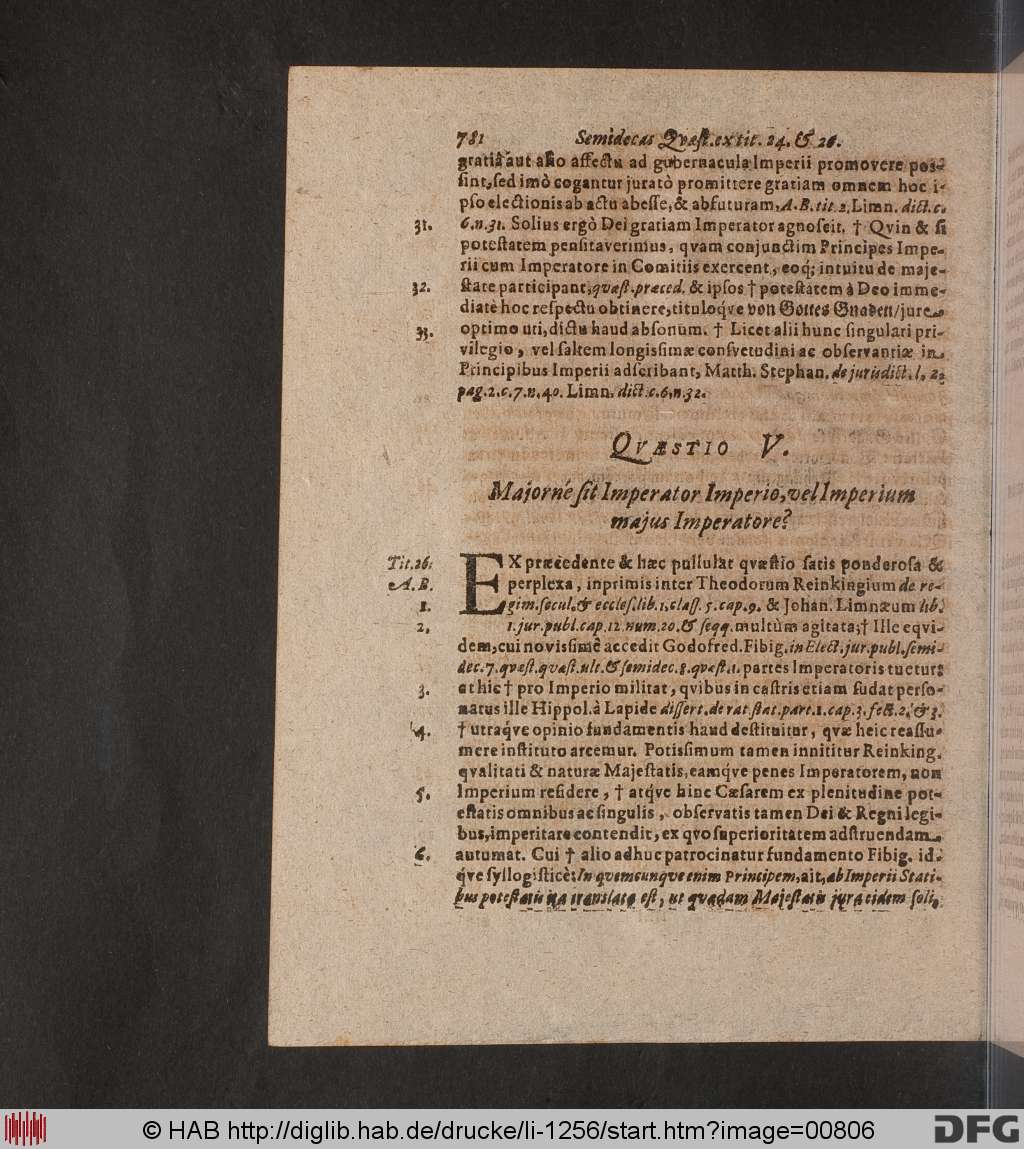 781 Semidecas Qvæst. ex tit. 24. & 26.
gratiâ aut alio affectu ad gubernacula Imperii promovere pos-
sint, sed imò cogantur juratò promittere gratiam omnem hoc i-
pso electionis ab actu abesse, & abfuturam, A. B. tit. 2. Limn. dict. c.
31. 6. n. 31. Solius ergò Dei gratiam Imperator agnoscit. † Qvin & si
potestatem pensitaverimus, qvam conjunctim Principes Impe-
rii cum Imperatore in Comitiis exercent, eoq; intuitu de maje-
32. state participant, qvæst. præced. & ipsos † potestatem à Deo imme-
diatè hoc respectu obtinere, tituloqve von Gottes Gnaden / jure
33. optimo uti, dictu haud absonum. † Licet alii hunc singulari pri-
vilegio, vel saltem longissimæ consvetudini ac observantiæ in
Principibus Imperii adscribant, Matth. Stephan. de jurisdict. l. 2.
pag. 2. c. 7. n. 40. Limn. dict. c. 6. n. 32.
QVÆSTIO V.
Majorné sit Imperator Imperio, vel Imperium
majus Imperatore?
Tit. 26. EX præcedente & hæc pullulat qvæstio satis ponderosa &
A. B. perplexa, inprimis inter Theodorum Reinkingium de re-
1. gim. secul. & eccles. lib. 1. class. 5. cap. 9. & Johan. Limnæum lib.
2. 1. jur. publ. cap. 12. num. 20. & seqq. multùm agitata; † Ille eqvi-
dem, cui novissimè accedit Godofred. Fibig. in Elect. jur. publ. semi-
dec. 7. qvæst. qvæst. ult. & semidec. 8. qvæst. 1. partes Imperatoris tuetur;
3. at hic † pro Imperio militat, qvibus in castris etiam sudat perso-
natus ille Hippol. à Lapide dissert. de rat. stat. part. 1. cap. 3. sect. 2. & 3.
4. † utraqve opinio fundamentis haud destituitur, qvæ heic reassu-
mere instituto arcemur. Potissimum tamen innititur Reinking.
qvalitati & naturæ Majestatis, eamqve penes Imperatorem, non
5. Imperium residere, † atqve hinc Cæsarem ex plenitudine pot-
estatis omnibus ac singulis, observatis tamen Dei & Regni legi-
bus, imperitare contendit, ex qvo superioritatem adstruendam
6. autumat. Cui † alio adhuc patrocinatur fundamento Fibig. id-
qve syllogisticè: In qvemcunqve enim Principem, ait, ab Imperii Stati-
bus potestatis ita translata est, ut qvædam Majestatis jura eidem soli,
© HAB http://diglib.hab.de/drucke/li-1256/start.htm?image=00806
DFG